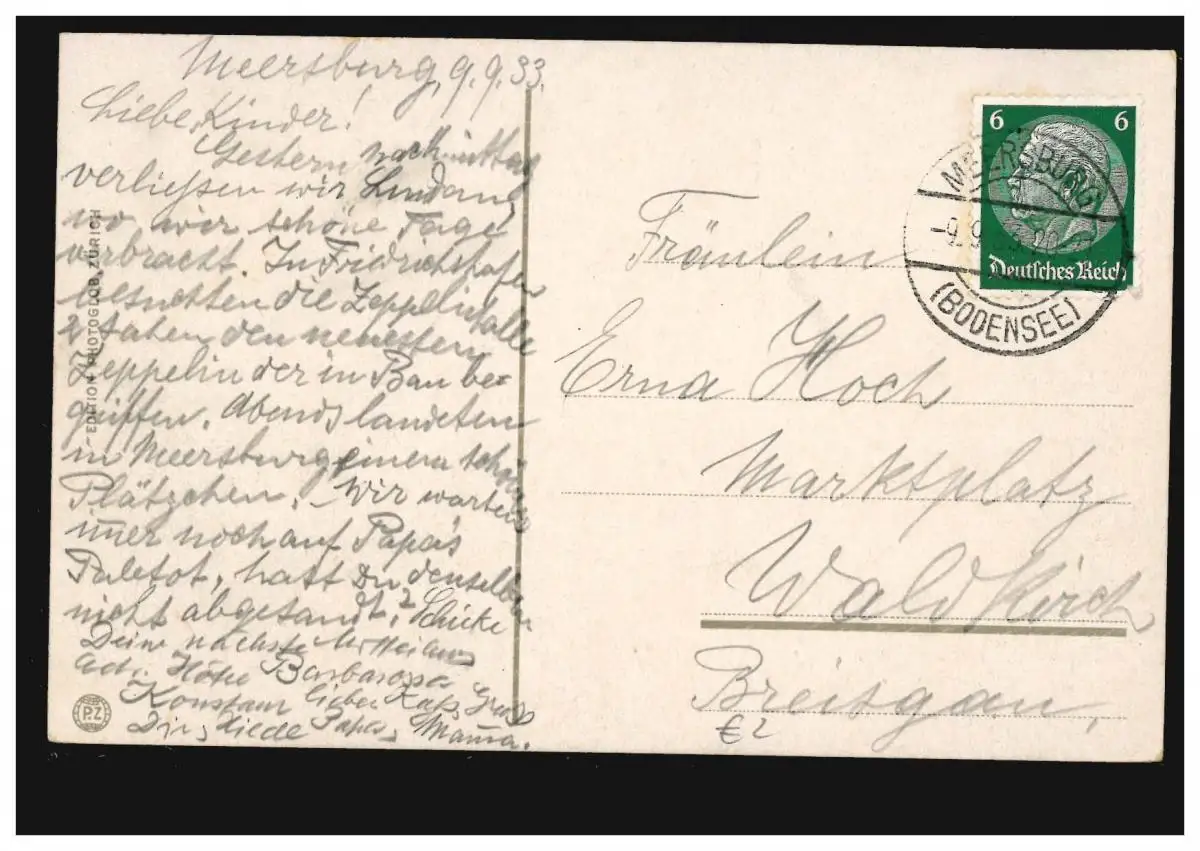 Meersburg, 9.9.33.
Liebe Kinder!
Gestern nachmittag
verließen wir Lindau,
wo wir schöne Tage
verbracht. In Friedrichshafen
besuchten die Zeppelinhalle
& sahen den neuesten
Zeppelin der in Bau be-
griffen. Abends landeten
in Meersburg, einem schönen
Plätzchen. Wir warten
im̄er noch auf Papa's
Paletot, hast Du denselben
nicht abgesandt? Schicke
Deine nächste
Adr. Hotel Barbarossa
Konstanz lieber
Papa, Mam̄a.
EDITION PHOTOGLOB, ZÜRICH
P.Z
6 6
Deutsches Reich
MEERSBURG
(BODENSEE)
Fräulein
Erna Hoch
Marktplatz
Waldkirch
Breisgau,
€ 2